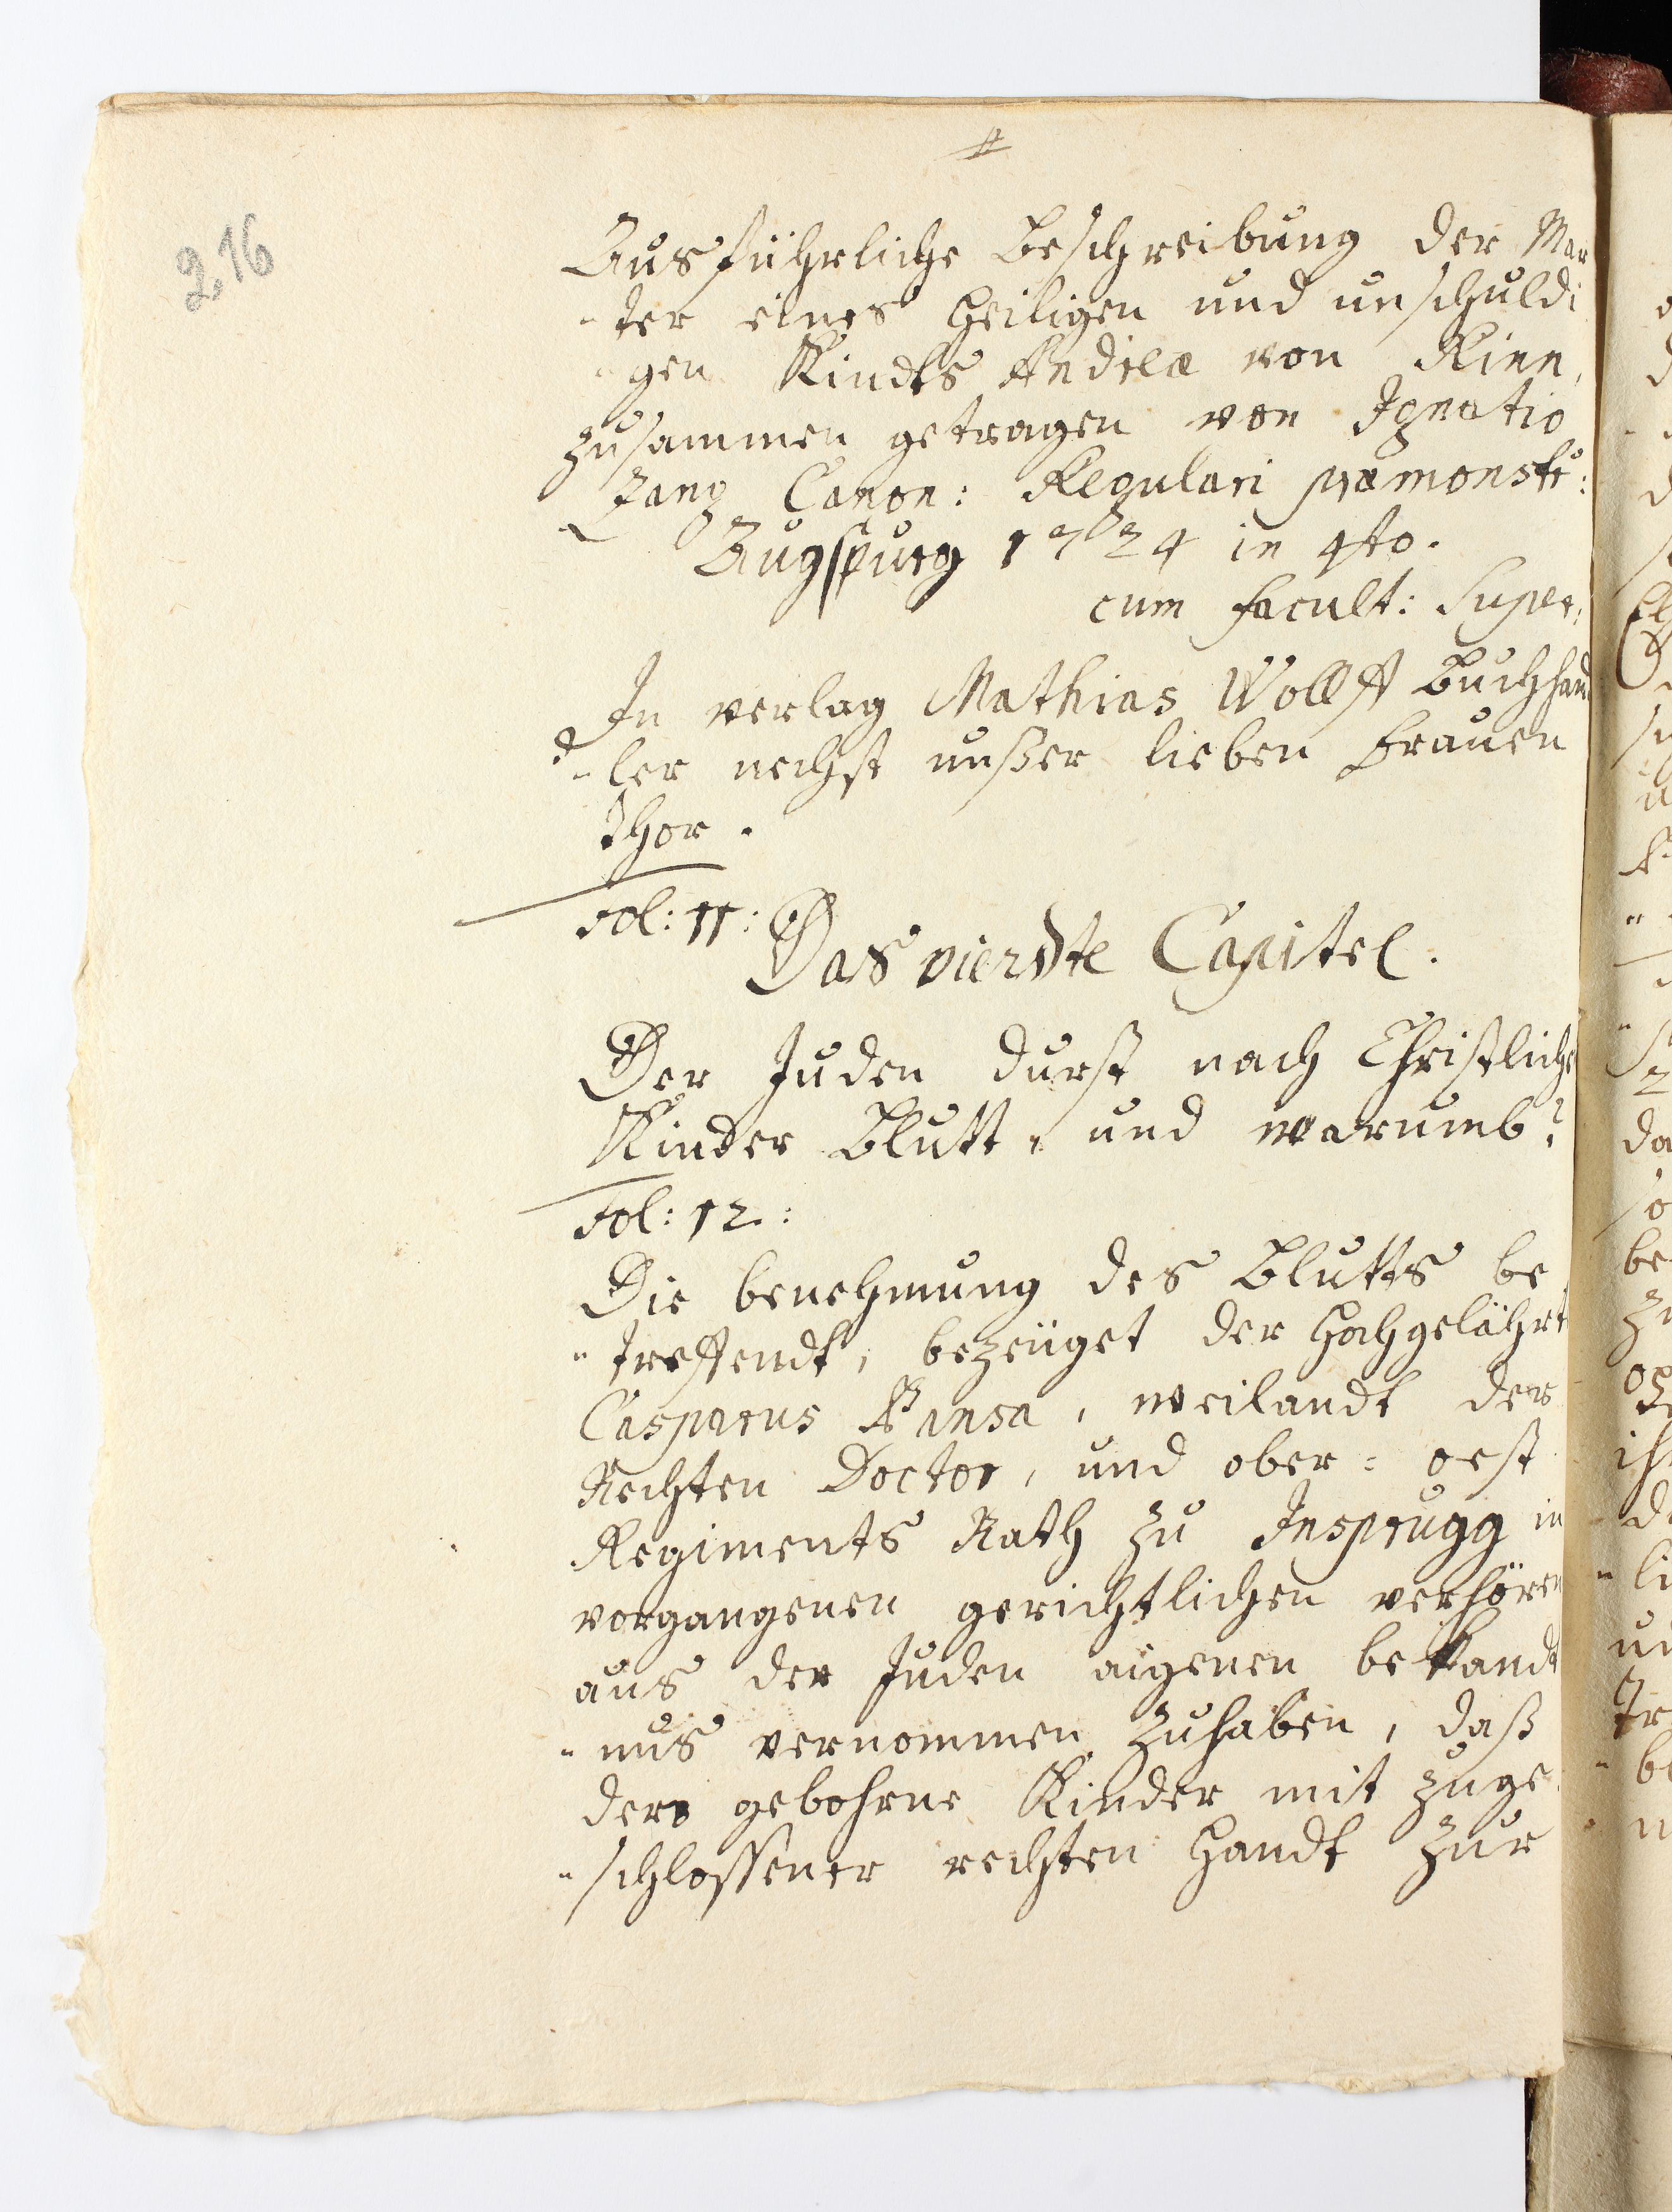 #
2,16
Ausführliche Beschreibung der Mar
-ter eines heiligen und unschuldi
-gen Kindts Andreæ von Rinn,
zusammen getragen von Ignatio
Zang Canon: Regulari præmonstr:
Augspurg 1724 in 4to.
cum facult: Super:
In verlag Mathias Wolff Buchhand
-ler nechst unßer lieben Frauen
Thor.
Fol: 11:
Das vierdte Capitel.
Der Juden durst nach Christliche
Kinder Blutt, und warumb?
Fol: 12:
Die benehmung des Blutts be
-treffendt, bezeüget der Hochgelährt
Casparus Pansa, weilandt der
Rechten Doctor, und ober= oest
Regiments Rath zu Insprugg in
vorgangenen gerichtlichen verhören
aus der Juden aigenen bekandt
-nus vernommen zuhaben, daß
dero gebohrne Kinder mit zuge
-schlossener rechten Handt zur